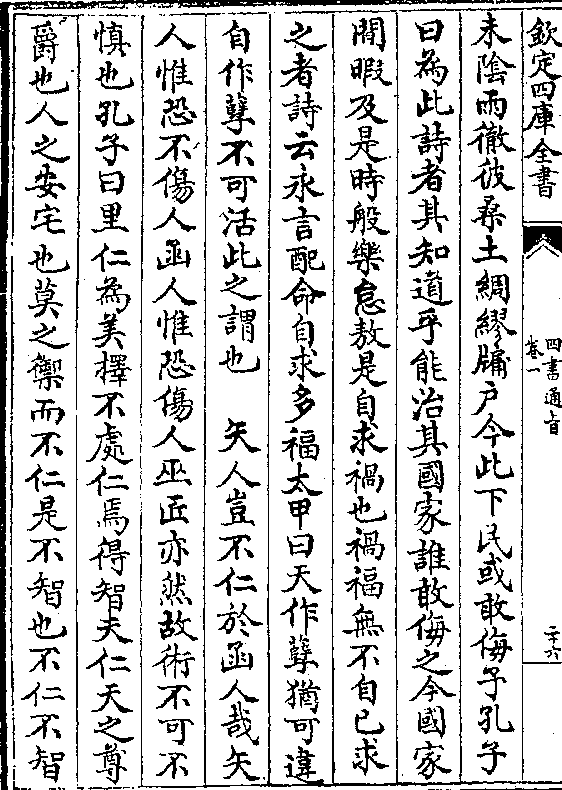 欽定四庫全書
四書通旨
卷一
二十六
未陰雨徹彼桑土綢繆牖戶今此下民或敢侮予孔子
曰為此詩者其知道乎能治其國家誰敢侮之今國家
閒暇及是時般樂怠敖是自求禍也禍福無不自己求
之者詩云永言配命自求多福太甲曰天作孽猶可違
自作孽不可活此之謂也　矢人豈不仁於函人哉矢
人惟恐不傷人函人惟恐傷人巫匠亦然故術不可不
慎也孔子曰里仁為美擇不處仁焉得智夫仁天之尊
爵也人之安宅也莫之禦而不仁是不智也不仁不智